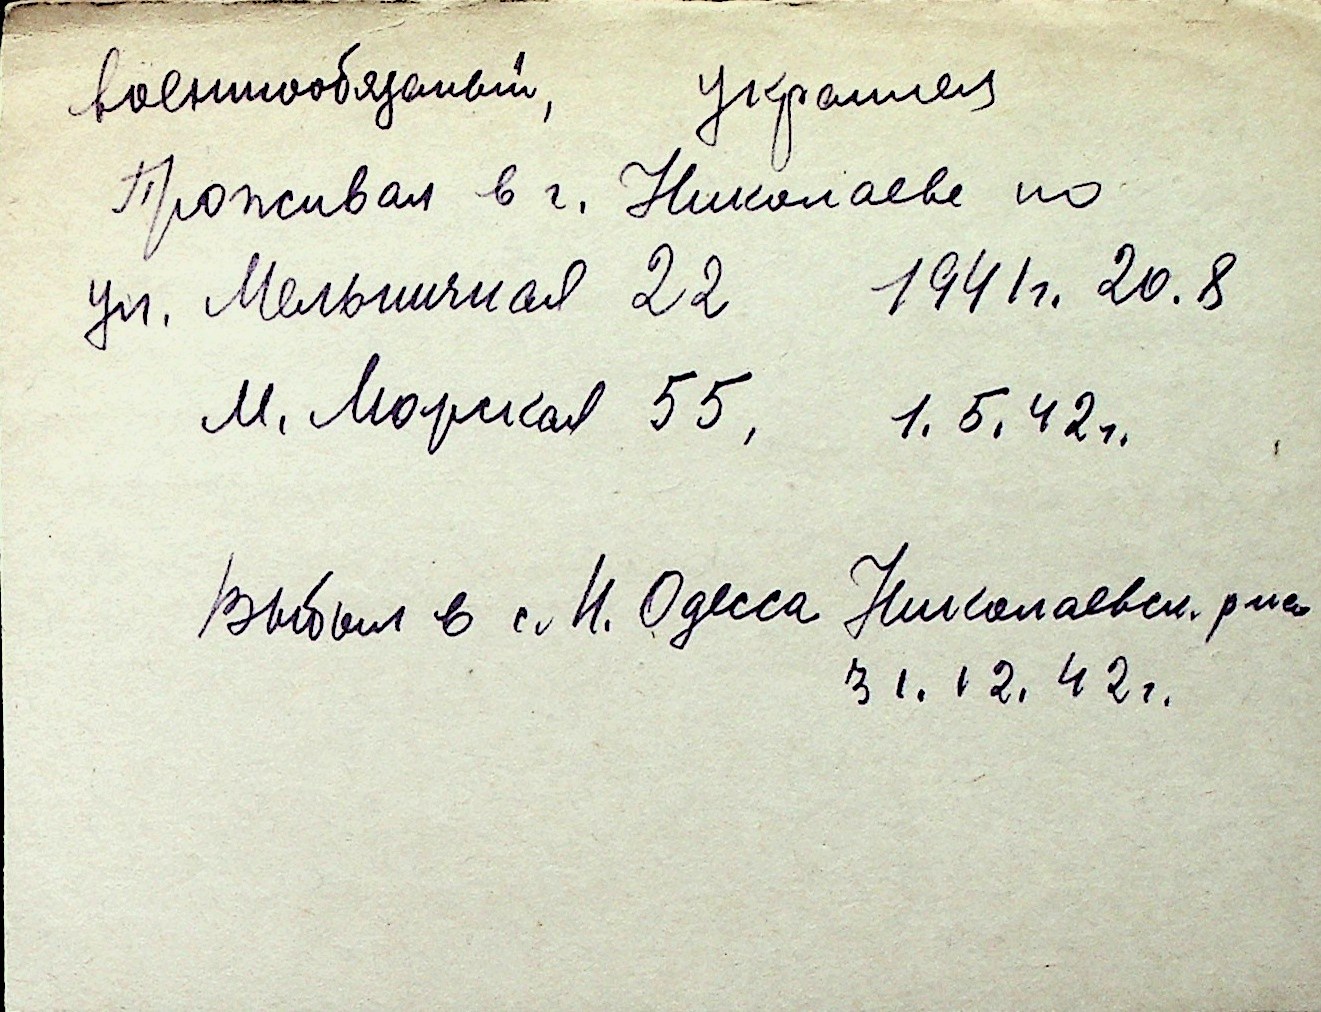 военнообязаный, украинец
Проживал в г. Николаеве по
ул. Мельничная 22 1941г. 20.8
М. Морская 55, 1.5.42г.
Выбыл в с. Н. Одесса Николаевск. р-на
31.12.42г.